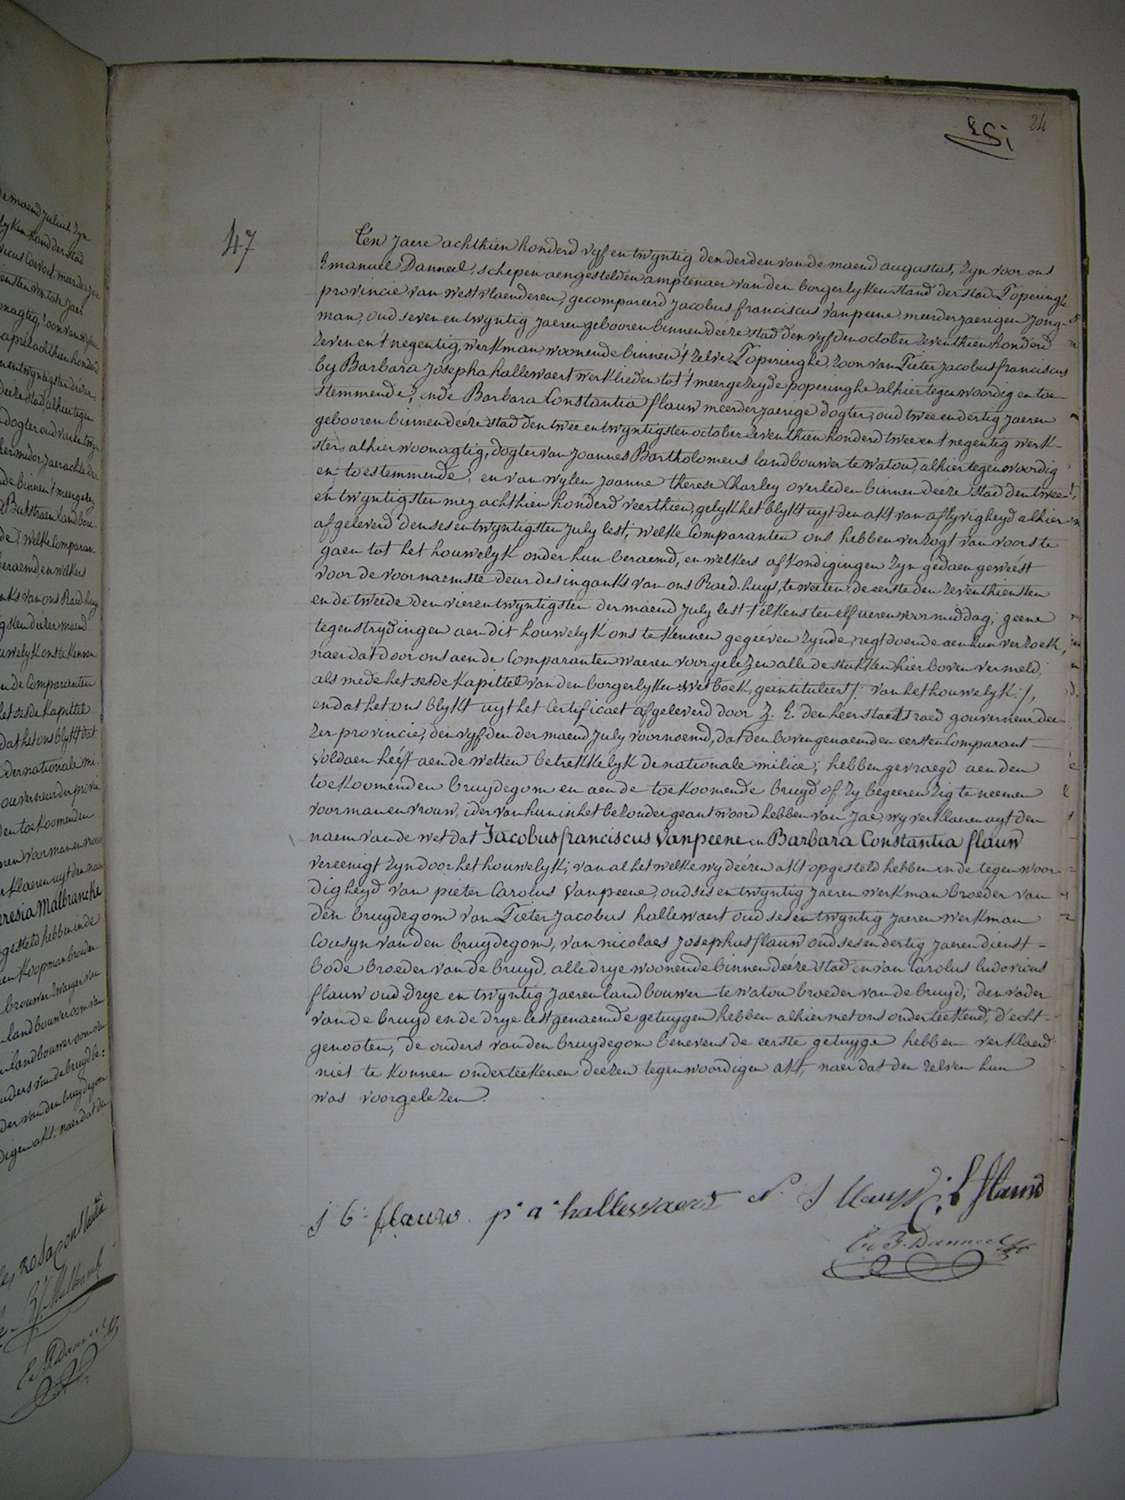 24
47
Ten jaere achthien honderd vyf en twyntig den derden van de maend augustus, zyn voor ons
Emanuel Danneel, schepen aengestelden amptenaer van den borgerlyken stand der stad Poperinghe
provincie van westvlaenderen, gecompareerd Jacobus franciscus vanpeene, meerderjaerigen jong-
man, oud seven en twyntig jaeren gebooren binnen deeze stad den vyfden october zeventhien honderd
zeven en t'negentig, werkman woonende binnen t'zelve Poperinghe, zoon van Pieter Jacobus franciscus
by Barbara Josepha hallewaert werklieden tot t'meergezeyde poperinghe alhier tegenwoordig en toe-
stemmende; ende Barbara Constantia flauw meerderjaerige dogter, oud twee en dertig jaeren
gebooren binnen deeze stad den twee en twyntigsten october zeventhien honderd twee en t'negentig werk-
ster, alhier woonagtig, dogter van Joannes Bartholomeus landbouwer te watou, alhier tegenwoordig
en toestemmende, en van wylen Joanne therese Charley overleden binnen deeze stad den twee
en twyntigsten mey achthien honderd veerthien, gelyk het blykt uyt den akt van aflyvigheyd alhier
afgeleverd den ses en twyntigsten July lest, welke Comparanten ons hebben verzogt van voorts te
gaen tot het houwelyk onder hun beraemd, en welkers afkondigingen zyn gedaen geweest
voor de voornaemste deur des ingangs van ons Raed-huys, te weeten: de eerste den zeventhiensten
en de tweede den vier en twyntigsten der maend July lest t'elkens ten elf ueren voormiddag; geene
tegenstrydingen aen dit houwelyk ons te kennen gegeeven zynde, regt doende aen hun verzoek,
naer dat door ons aen de Comparanten waeren voorgelezen alle de stukken hier boven vermeld,
als mede het sesde kapittel van den borgerlyken wetboek, geintituleert /: van het houwelyk :/,
en dat het ons blykt uyt het Certificaet afgeleverd door Z. E. den heer staets raed gouverneur dee-
zer provincie, den vyfden der maend July voornoemd, dat den boven genaemden eersten Comparant
voldaen heeft aen de wetten betrekkelyk de nationale milice; hebben gevraegd aen den
toekoomenden bruydegom en aen de toekoomende bruyd of zy begeeren zig te neemen
voor man en vrouw, ider van hun in het bezonder geantwoord hebben van Jae, wy verklaeren uyt den
naem van de wet dat Jacobus franciscus Vanpeene en Barbara Constantia flauw
vereenigt zyn door het houwelyk; van al het welke wy deezen akt opgesteld hebben in de tegenwoor-
digheyd van pieter Carolus Vanpeene, oud ses en twyntig jaeren werkman broeder van
den bruydegom van Pieter Jacobus hallewaert oud ses en twyntig jaeren werkman
Cousyn van den bruydegom, van nicolaes Josephus flauw oud ses en dertig jaeren dienst-
bode broeder van de bruyd, alle drye woonende binnen deeze stad en van Carolus Ludovicus
flauw oud drye en twyntig jaeren landbouwer te watou broeder van de bruyd; den vader
van de bruyd en de drye lestgenaemde getuygen hebben alhier met ons onderteekend, d'echt-
genooten, de ouders van den bruydegom benevens de eerste getuyge hebben verklaerd
niet te konnen onderteekenen deezen tegenwoordigen akt, naer dat den zelven hun
was voorgelezen.
J b: flauw p. a. hallewaert N. J flauw C. L flauw
E. F. Danneel